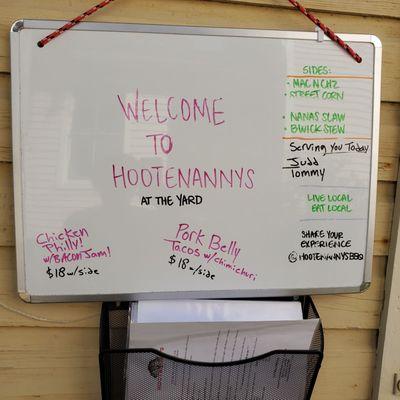 WELCOME
TO
HOOTENANNYS
AT THE YARD
Chicken
Philly!
w/BACON Jam!
$18 w/side
Pork Belly
Tacos w/chimichuri
$18 w/side
SIDES:
• MAC N CHZ
• STREET CORN
• NANAS SLAW
• BWICK STEW
Serving You Today
Judd
Tommy
LIVE LOCAL
EAT LOCAL
SHARE YOUR
EXPERIENCE
@HOOTENANNYSBBQ